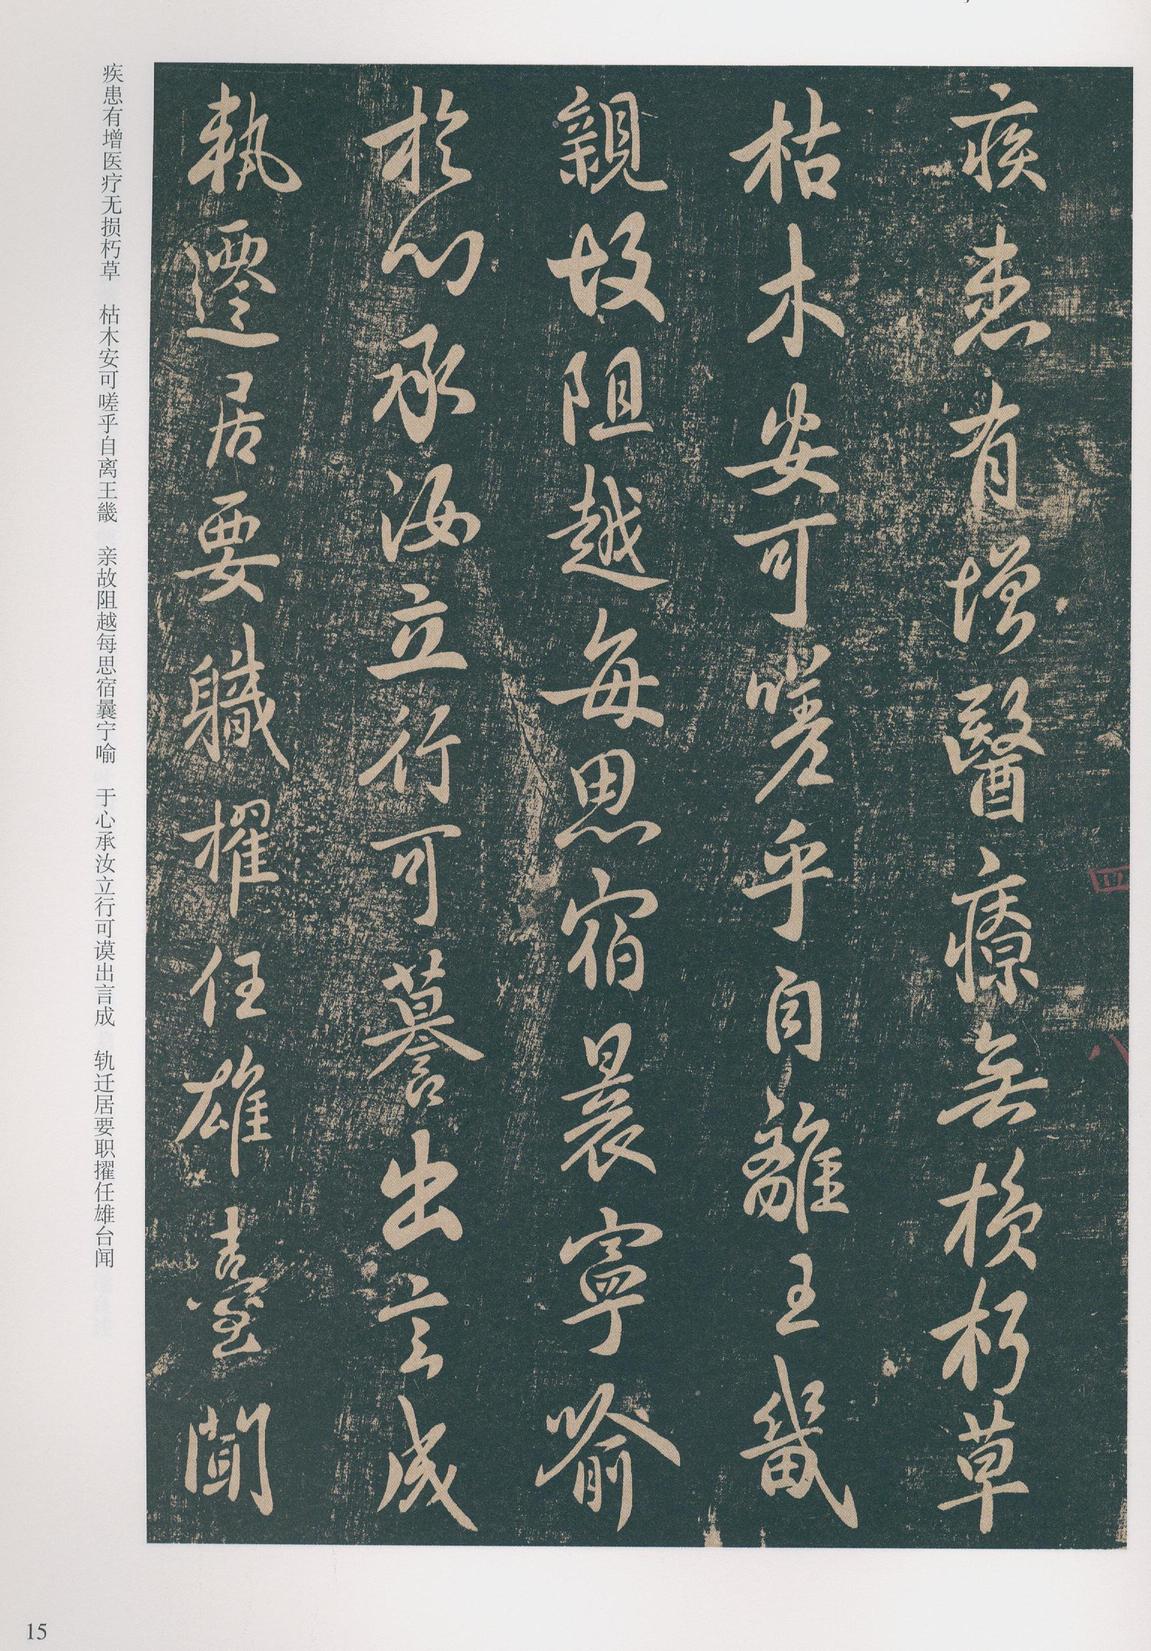 疾患有增醫療無損朽草
枯木安可嗟乎自離王畿
親故阻越每思宿曩寧喻
於心承汝立行可謩出言成
軌遷居要職擢任雄臺聞
疾患有增医疗无损朽草　枯木安可嗟乎自离王畿　亲故阻越每思宿曩宁喻　于心承汝立行可谟出言成　轨迁居要职擢任雄台闻
15